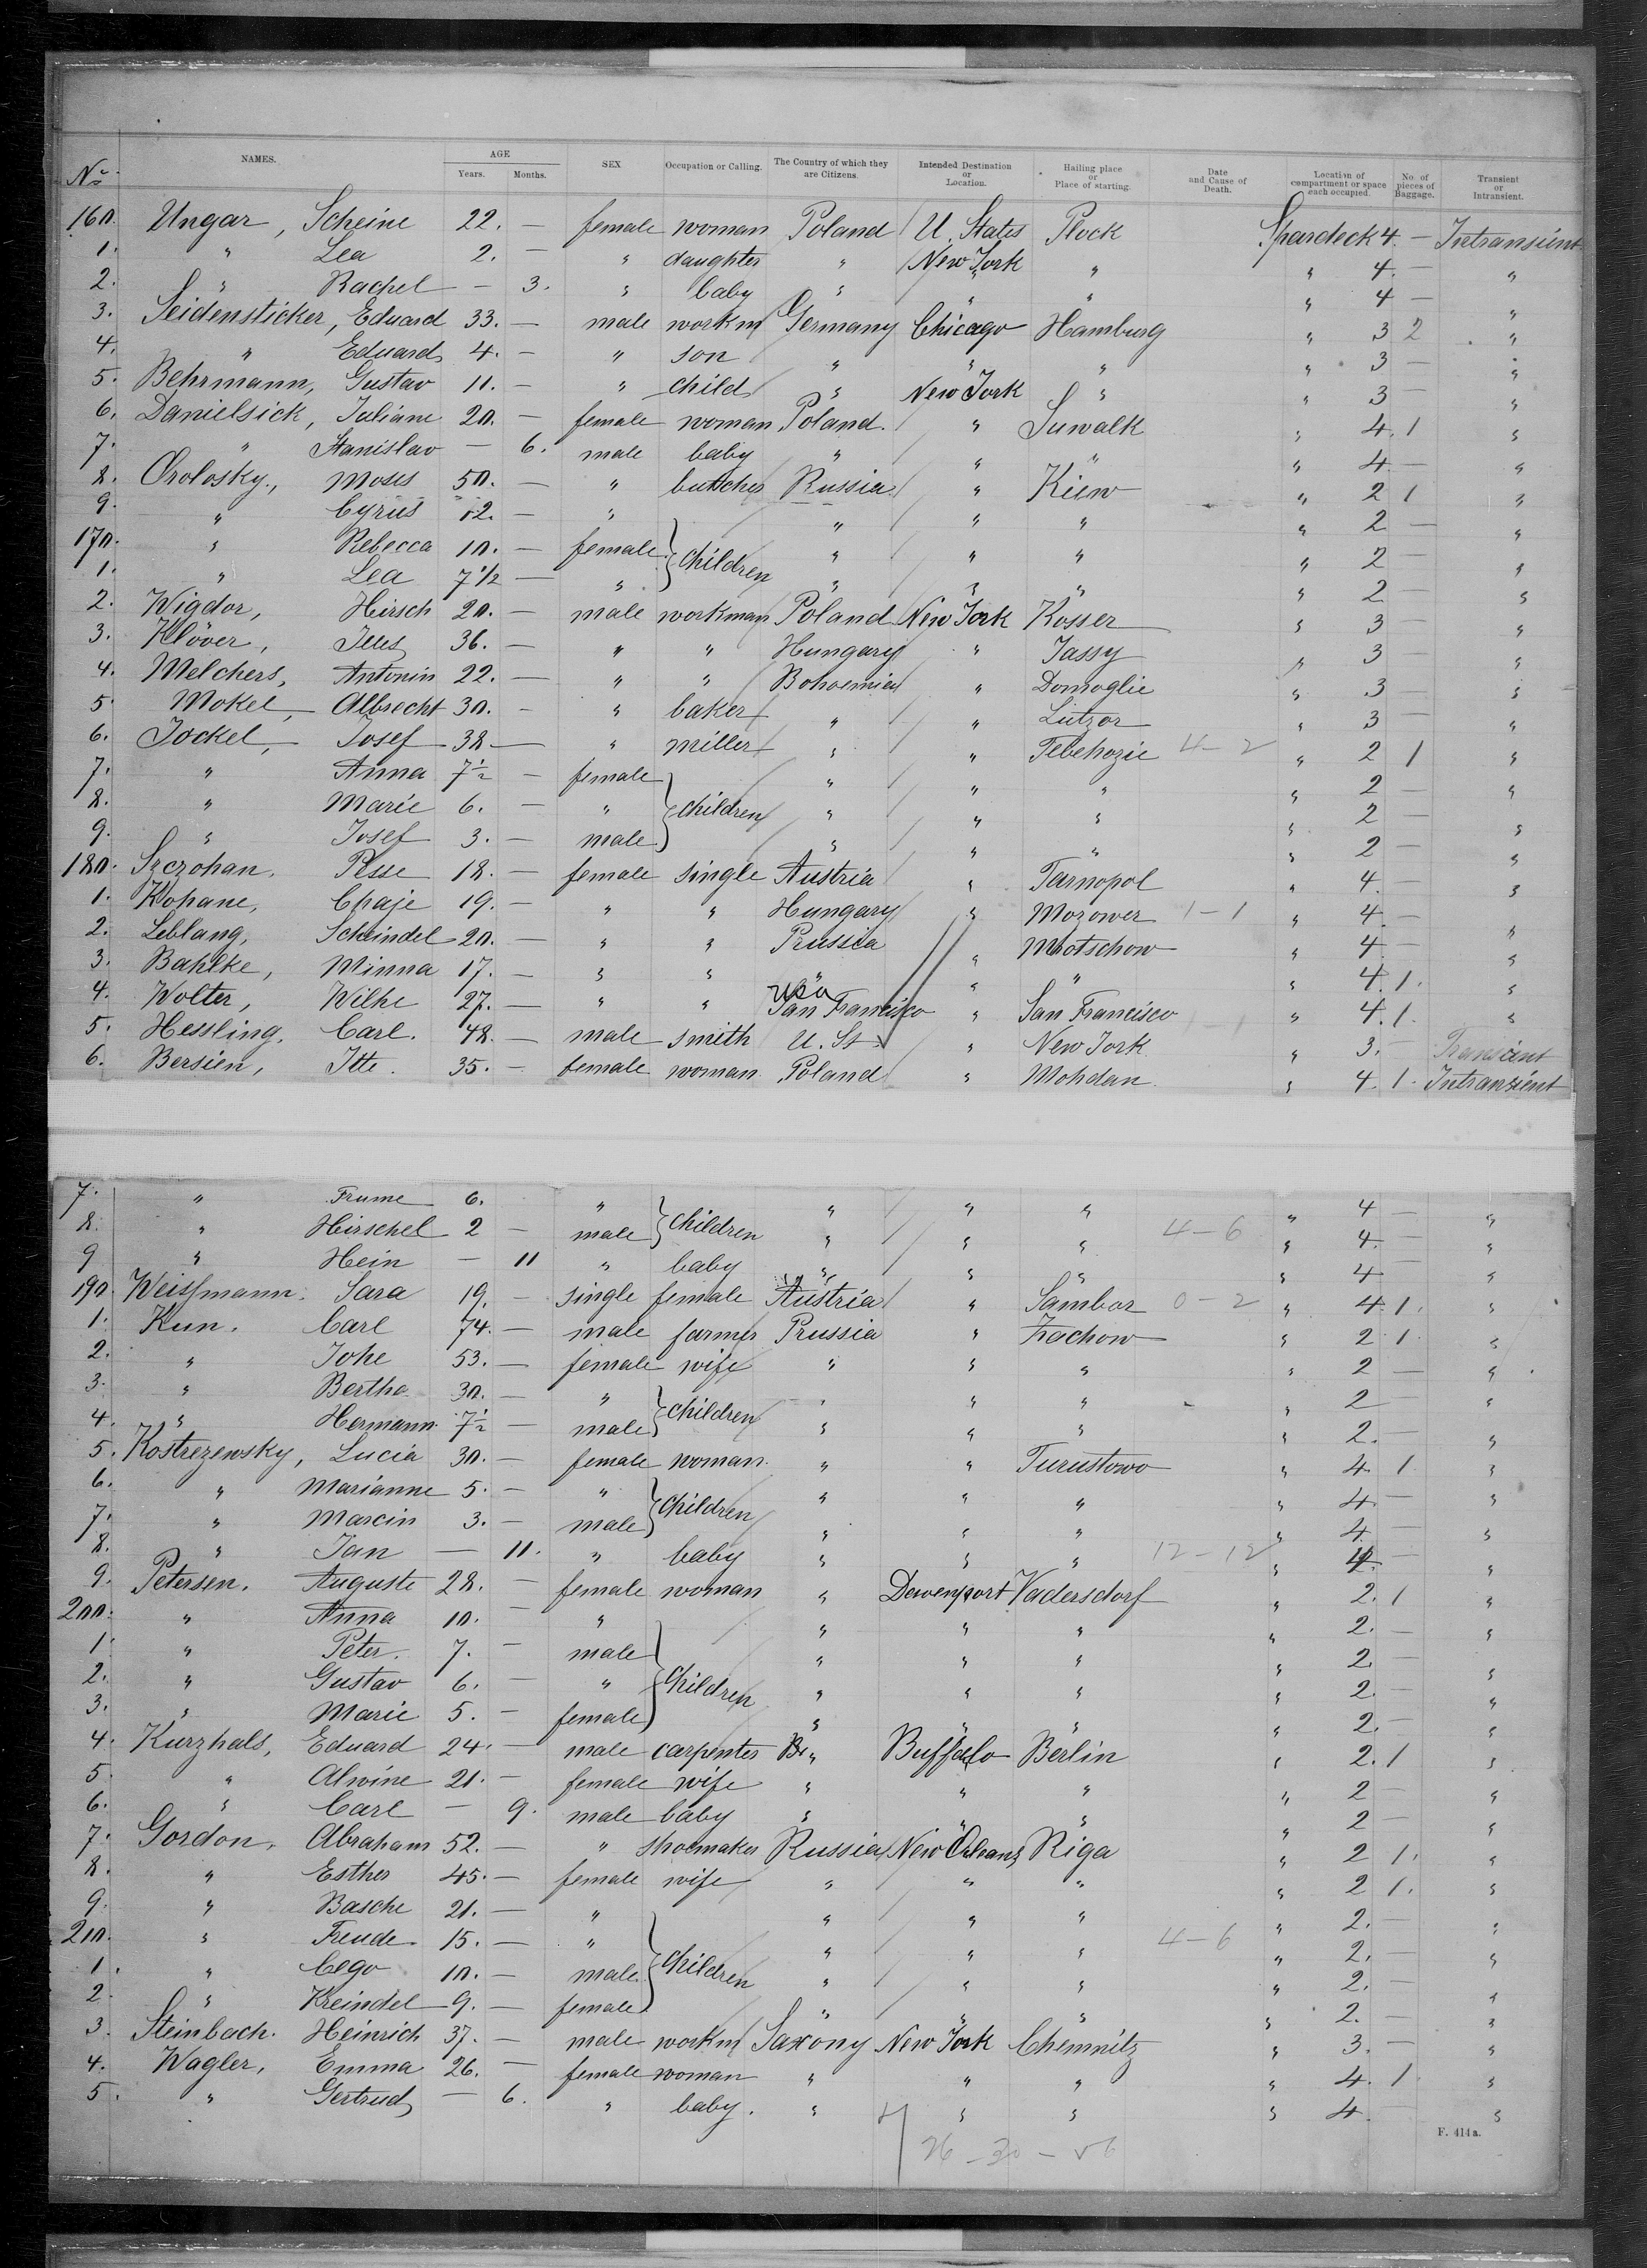 No. NAMES. AGE Years. Months. SEX Occupation or Calling. The Country of which they are Citizens. Intended Destination or Location. Hailing place or Place of starting. Date and Cause of Death. Location of compartment or space each occupied. No. of pieces of Baggage. Transient or Intransient.
160. Ungar, Scheine 22. — female woman Poland U. States Plock Spardeck 4. — Intransient
1. " Lea 2. — " daughter " New York " " 4. — "
2. " Rachel — 3. " baby " " " " 4 — "
3. Seidensticker, Eduard 33. — male workm Germany Chicago Hamburg " 3 2 "
4. " Eduard 4. — " son " " " " 3 — "
5. Behrmann, Gustav 11. — " child " New York " " 3 — "
6. Danielsick, Juliane 20. — female woman Poland. " Suwalk " 4. 1 "
7. " Stanislav — 6. male baby " " " " 4. — "
8. Orolosky., Moses 50. — " butscher Russia. " Kiew " 2 1 "
9. " Cyrus 12. — " " " " " 2 — "
170. " Rebecca 10. — female } children " " " " 2 — "
1. " Lea 7 1/2 — " " " " " 2 — "
2. Wigdor, Hirsch 20. — male workman Poland New York Kosser " 3 — "
3. Klöver, Illes 36. — " " Hungary " Jassy " 3 — "
4. Melchers, Antonin 22. — " " Bohoemia " Domoglie " 3 — "
5. Mokel, Albrecht 30. — " baker " " Lutzor " 3 — "
6. Jockel, Josef 38 — " miller " " Tebehozie 4-2 " 2 1 "
7. " Anna 7 1/2 — female " " " " 2 — "
8. " Marie 6. — " } children " " " " 2 — "
9. " Josef 3. — male " " " " 2 — "
180. Szczohan. Pesse 18. — female single Austria " Tarnopol " 4. — "
1. Kohane, Chaje 19. — " " Hungary " Mozower 1-1 " 4. — "
2. Leblang, Scheindel 20. — " " Prussia " Mrotschow " 4. — "
3. Bahlke, Minna 17. — " " " " " " 4. 1. "
4. Wolter, Wilhe 27. — " " San Francisco " San Francisco " 4. 1. "
5. Hessling, Carl. 48. — male smith U. St " New York 1-1 " 3. — Transient
6. Bersien, Itte. 35. — female woman. Poland " Mohdan. " 4. 1. Intransient
7. " Frume 6. " " " " " 4 — "
8. " Hirschel 2 — male } children " " " 4-6 " 4. — "
9 " Hein — 11 " baby " " " " 4 — "
190. Weissmann. Sara 19. — single female Austria " Sambor 0-2 " 4. 1. "
1. Kun. Carl 74. — male farmer Prussia " Zachow " 2. 1. "
2. " Johe 53. — female wife " " " " 2 — "
3. " Bertha 30. — " " " " " 2 — "
4. " Hermann. 7 1/2 — male } children " " " " 2. — "
5. Kostrezewsky, Lucia 30. — female woman. " " Turustowo " 4. 1 "
6. " Marianne 5. — " " " " " 4. — "
7. " Marcin 3. — male } children " " " " 4. — "
8. " Jan — 11. " baby " " " 12-12 " 4. — "
9. Petersen. Auguste 28. — female woman " Davenport Vadersdorf " 2. 1 "
200. " Anna 10. — " " " " " 2. — "
1. " Peter. 7. — male " " " " 2. — "
2. " Gustav 6. — " } children " " " " 2. — "
3. " Marie 5. — female " " " " 2. — "
4. Kurzhals, Eduard 24. — male carpenter " Buffalo Berlin " 2. 1 "
5. " Alwine 21. — female wife " " " " 2 — "
6. " Carl — 9. male baby " " " " 2 — "
7. Gordon, Abraham 52. — " shoemaker Russia New Orleans Riga " 2 1. "
8. " Esther 45. — female wife " " " " 2 1. "
9. " Basche 21. — " " " " " 2. — "
210. " Freude. 15. — " " " " 4-6 " 2. — "
1. " Cego 10. — male } children " " " " 2. — "
2. " Kreindel 9. — female " " " " 2. — "
3. Steinbach. Heinrich 37. — male workm Saxony New York Chemnitz " 3. — "
4. Wagler, Emma 26. — female woman " " " " 4. 1. "
5. " Gertrud — 6. " baby. " " " " 4. "
F. 414a.
26-30-56